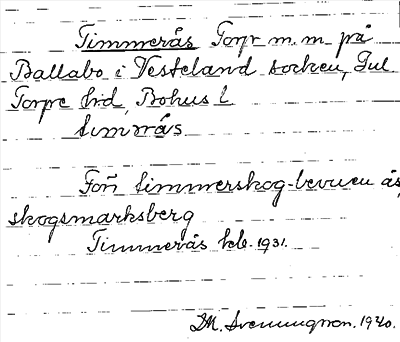 Timmerås Torp m.m. på
Ballabo i Vesteland socken,
Torpe hd, Bohus l.
timrås
Förr timmerskog-bevuxen ås,
skogsmarksberg
Timmerås kb. 1931.
1940.